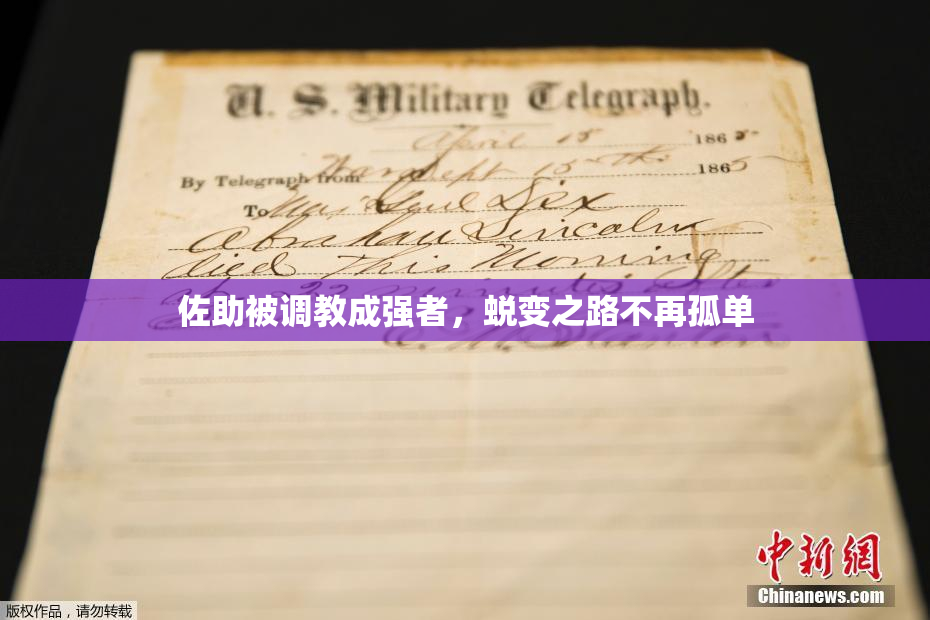 U. S. Military Telegraph.
April 15 1865
By Telegraph from War Dept 15th 1865
To Maj Genl Dix
Abraham Lincoln
died This Morning
佐助被调教成强者，蜕变之路不再孤单
中新网
Chinanews.com
版权作品，请勿转载